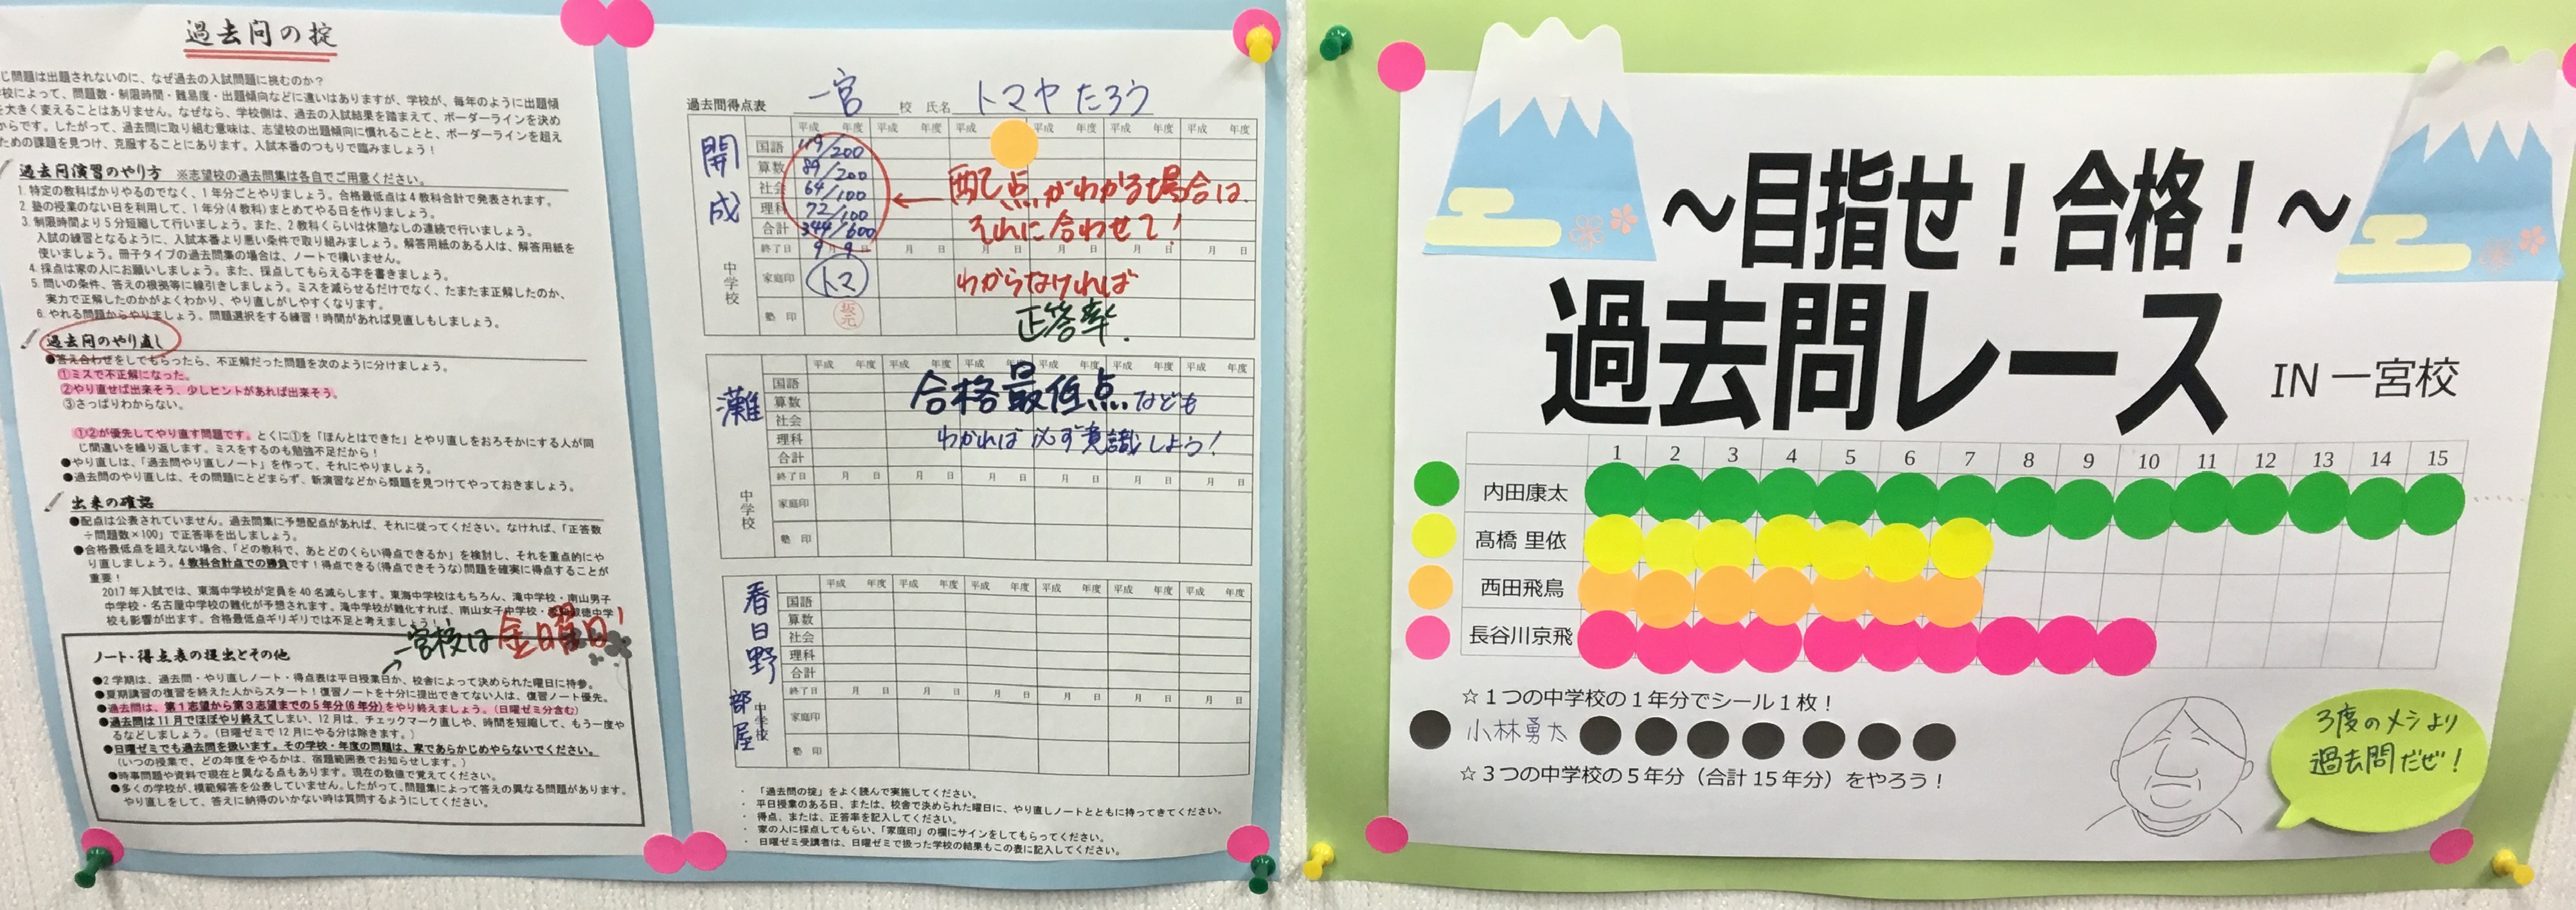 過去問の掟
じ問題は出題されないのに、なぜ過去の入試問題に挑むのか？
校によって、問題数・制限時間・難易度・出題傾向などに違いはありますが、学校が、毎年のように出題傾
を大きく変えることはありません。なぜなら、学校側は、過去の入試結果を踏まえて、ボーダーラインを決め
からです。したがって、過去問に取り組む意味は、志望校の出題傾向に慣れることと、ボーダーラインを超え
ための課題を見つけ、克服することにあります。入試本番のつもりで臨みましょう！
過去問演習のやり方　※志望校の過去問集は各自でご用意ください。
1. 特定の教科ばかりやるのでなく、1年分ごとやりましょう。合格最低点は4教科合計で発表されます。
2. 塾の授業のない日を利用して、1年分(4教科)まとめてやる日を作りましょう。
3. 制限時間より5分短縮して行いましょう。また、2教科くらいは休憩なしの連続で行いましょう。
入試の練習となるように、入試本番より悪い条件で取り組みましょう。解答用紙のある人は、解答用紙を
使いましょう。冊子タイプの過去問集の場合は、ノートで構いません。
4. 採点は家の人にお願いしましょう。また、採点してもらえる字を書きましょう。
5. 問いの条件、答えの根拠等に線引きしましょう。ミスを減らせるだけでなく、たまたま正解したのか、
実力で正解したのかがよくわかり、やり直しがしやすくなります。
6. やれる問題からやりましょう。問題選択をする練習！時間があれば見直しもしましょう。
過去問のやり直し
●答え合わせをしてもらったら、不正解だった問題を次のように分けましょう。
①ミスで不正解になった。
②やり直せば出来そう、少しヒントがあれば出来そう。
③さっぱりわからない。
①②が優先してやり直す問題です。とくに①を「ほんとはできた」とやり直しをおろそかにする人が同
じ間違いを繰り返します。ミスをするのも勉強不足だから！
●やり直しは、「過去問やり直しノート」を作って、それにやりましょう。
●過去問のやり直しは、その問題にとどまらず、新演習などから類題を見つけてやっておきましょう。
出来の確認
●配点は公表されていません。過去問集に予想配点があれば、それに従ってください。なければ、「正答数
÷問題数×100」で正答率を出しましょう。
●合格最低点を超えない場合、「どの教科で、あとどのくらい得点できるか」を検討し、それを重点的にや
り直しましょう。4教科合計点での勝負です！得点できる(得点できそうな)問題を確実に得点することが
重要！
2017年入試では、東海中学校が定員を40名減らします。東海中学校はもちろん、滝中学校・南山男子
中学校・名古屋中学校の難化が予想されます。滝中学校が難化すれば、南山女子中学校・愛知淑徳中学
校も影響が出ます。合格最低点ギリギリでは不足と考えましょう！
一宮校は金曜日！
ノート・得点表の提出とその他
●2学期は、過去問・やり直しノート・得点表は平日授業日か、校舎によって決められた曜日に持参。
●夏期講習の復習を終えた人からスタート！復習ノートを十分に提出できてない人は、復習ノート優先。
●過去問は、第1志望から第3志望までの5年分(6年分)をやり終えましょう。(日曜ゼミ分含む)
●過去問は11月でほぼやり終えてしまい、12月は、チェックマーク直しや、時間を短縮して、もう一度や
るなどしましょう。(日曜ゼミで12月にやる分は除きます。)
●日曜ゼミでも過去問を扱います。その学校・年度の問題は、家であらかじめやらないでください。
(いつの授業で、どの年度をやるかは、宿題範囲表でお知らせします。)
●時事問題や資料で現在と異なる点もあります。現在の数値で覚えてください。
●多くの学校が、模範解答を公表していません。したがって、問題集によって答えの異なる問題があります。
やり直しをして、答えに納得のいかない時は質問するようにしてください。
過去問得点表　一宮　校　氏名　トマヤ たろう
開成　中学校
平成　年度　平成　年度　平成　平成　年度　平成　年度　平成　年度
国語　119/200
算数　89/200
社会　64/100
理科　72/100
合計　344/600
終了日　9月9日　月　日　月　日　月　日　月　日　月　日
家庭印　トマ
塾印　坂元
配点がわかる場合は
それに合わせて！
わからなければ
正答率．
灘　中学校
平成　年度　平成　年度　平成　年度　平成　年度　平成　年度　平成　年度
国語
算数
社会
理科
合計
終了日　月　日　月　日　月　日　月　日　月　日　月　日
家庭印
塾印
合格最低点なども
わかれば必ず意識しよう！
春日野部屋　中学校
平成　年度　平成　年度　平成　年度　平成　年度　平成　年度　平成　年度
国語
算数
社会
理科
合計
終了日　月　日　月　日　月　日　月　日　月　日　月　日
家庭印
塾印
・「過去問の掟」をよく読んで実施してください。
・平日授業のある日、または、校舎で決められた曜日に、やり直しノートとともに持ってきてください。
・得点、または、正答率を記入してください。
・家の人に採点してもらい、「家庭印」の欄にサインをしてもらってください。
・日曜ゼミ受講者は、日曜ゼミで扱った学校の結果もこの表に記入してください。
～目指せ！合格！～
過去問レース IN 一宮校
1 2 3 4 5 6 7 8 9 10 11 12 13 14 15
内田康太
髙橋 里依
西田飛鳥
長谷川京飛
☆１つの中学校の１年分でシール１枚！
小林勇太
☆３つの中学校の５年分（合計15年分）をやろう！
3度のメシより
過去問だぜ！